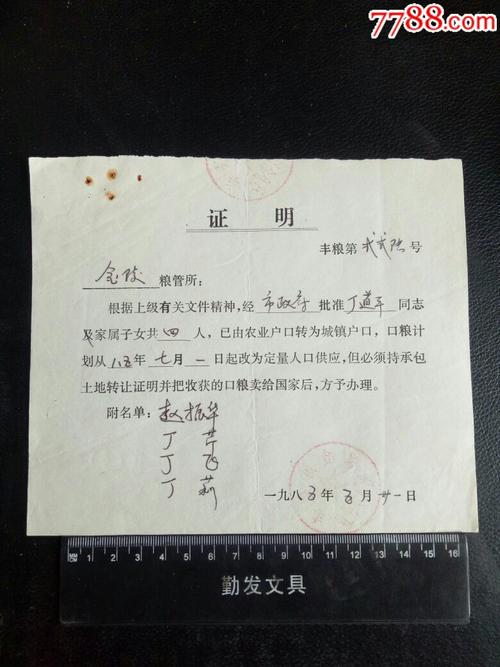 7788.com
中国收藏热线
证 明
丰粮第 弍弍陆 号
金陵 粮管所：
根据上级有关文件精神，经 市政府 批准 丁道平 同志
及家属子女共 四 人，已由农业户口转为城镇户口，口粮计
划从 八五 年 七 月 一 日起改为定量人口供应，但必须持承包
土地转让证明并把收获的口粮卖给国家后，方予办理。
附名单：赵振华
丁
丁 飞
丁 莉
一九八五年五月廿一日
0 1 2 3 4 5 6 7 8 9 10 11 12 13 14 15 16
勤发文具